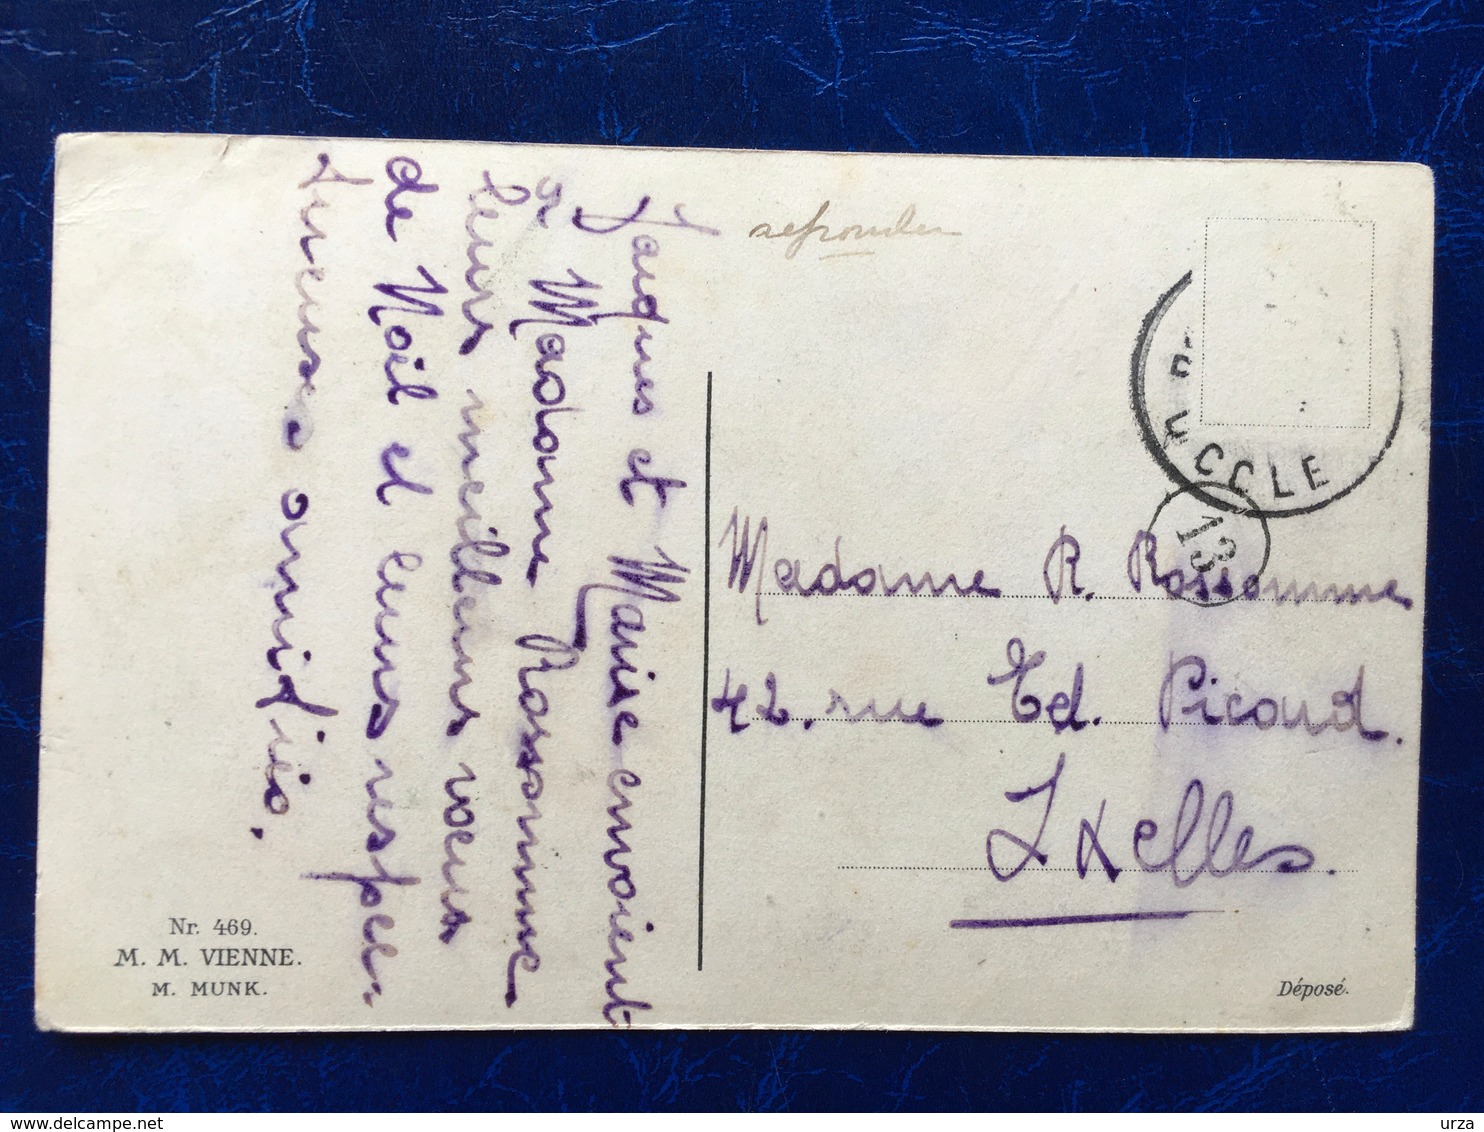 Jacques et Marise envoient
a Madame Rossomme
leurs meilleurs voeux
de Noël et leurs respec
tueuses amitiés.
repondu
UCCLE
13
Madame R. Rossomme
42. rue Ed. Picard.
Ixelles.
Nr. 469.
M. M. VIENNE.
M. MUNK.
Déposé.
delcampe.net
urza